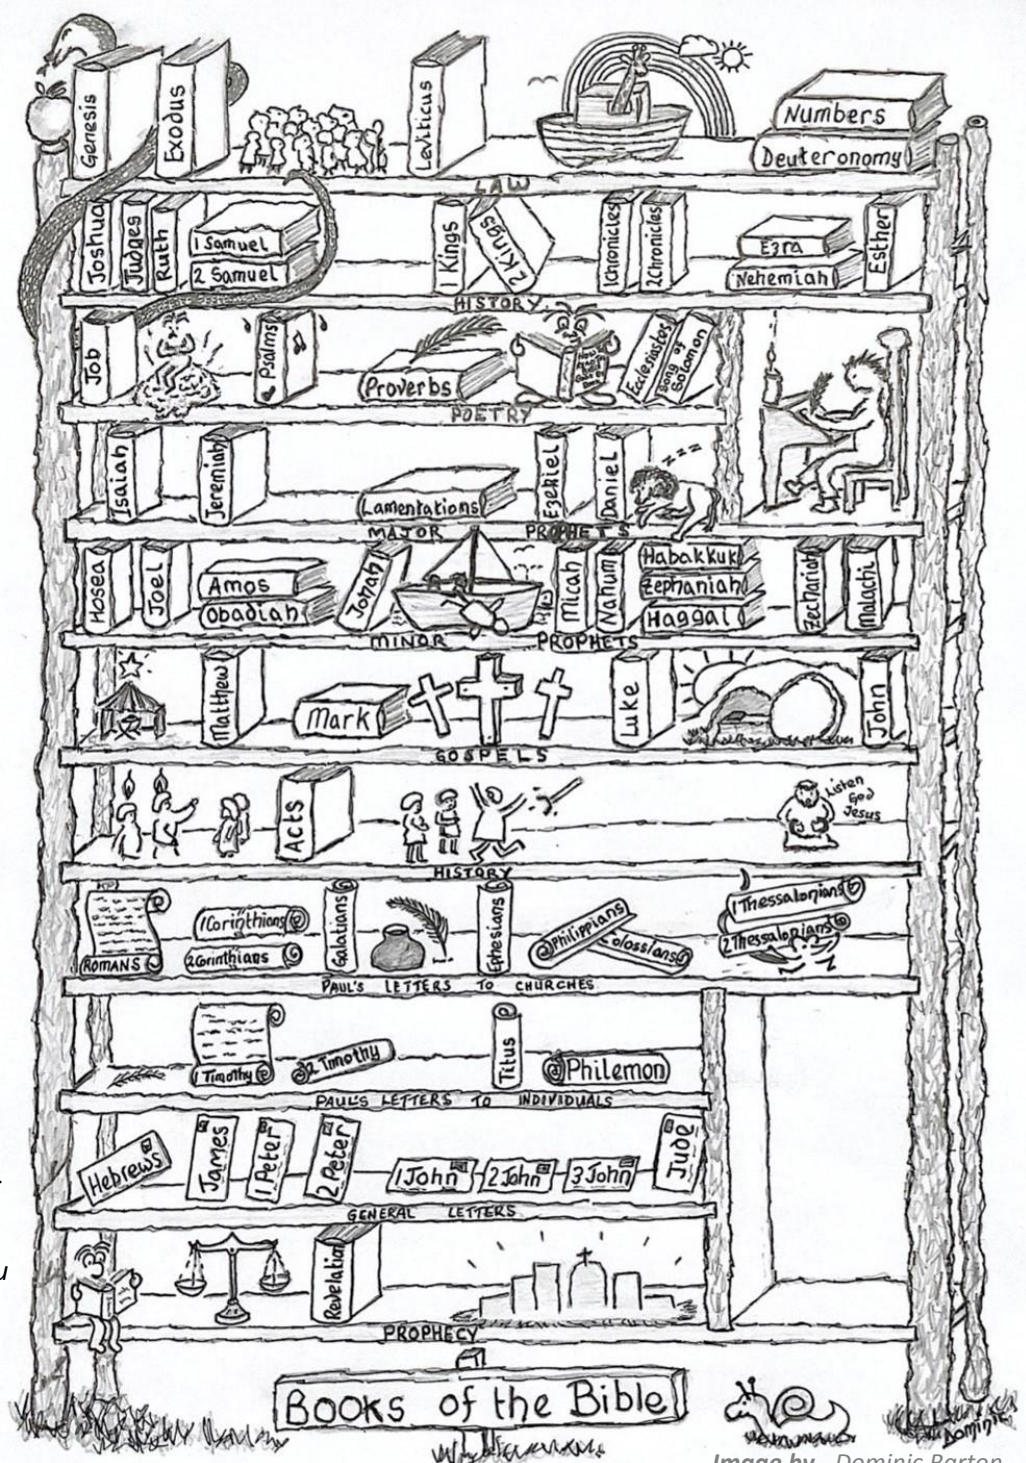 Genesis
Exodus
Leviticus
Numbers
Deuteronomy
LAW
Joshua
Judges
Ruth
1 Samuel
2 Samuel
1 Kings
2 Kings
1 Chronicles
2 Chronicles
Ezra
Nehemiah
Esther
HISTORY
Job
Psalms
Proverbs
Ecclesiastes
Song of
Solomon
POETRY
Isaiah
Jeremiah
Lamentations
Ezekiel
Daniel
zzz
MAJOR PROPHETS
Hosea
Joel
Amos
Obadiah
Jonah
Micah
Nahum
Habakkuk
Zephaniah
Haggai
Zechariah
Malachi
MINOR PROPHETS
Matthew
Mark
Luke
John
GOSPELS
Acts
Listen
God
Jesus
HISTORY
ROMANS
1 Corinthians
2 Corinthians
Galatians
Ephesians
Philippians
Colossians
1 Thessalonians
2 Thessalonians
PAUL'S LETTERS TO CHURCHES
1 Timothy
2 Timothy
Titus
Philemon
PAUL'S LETTERS TO INDIVIDUALS
Hebrews
James
1 Peter
2 Peter
1 John
2 John
3 John
Jude
GENERAL LETTERS
Revelation
PROPHECY
Books of the Bible
Dominic
Image by Dominic Barton